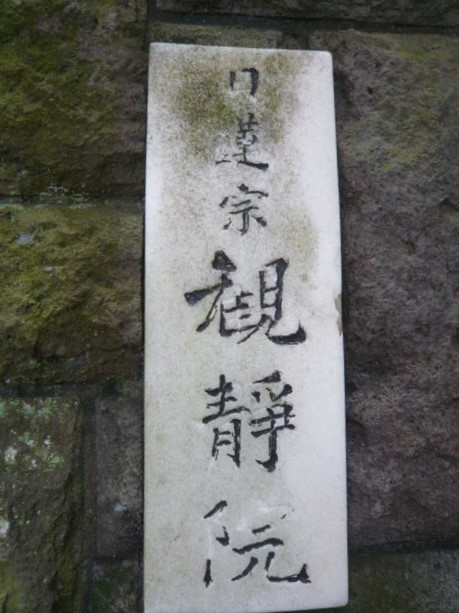 日蓮宗
観靜院